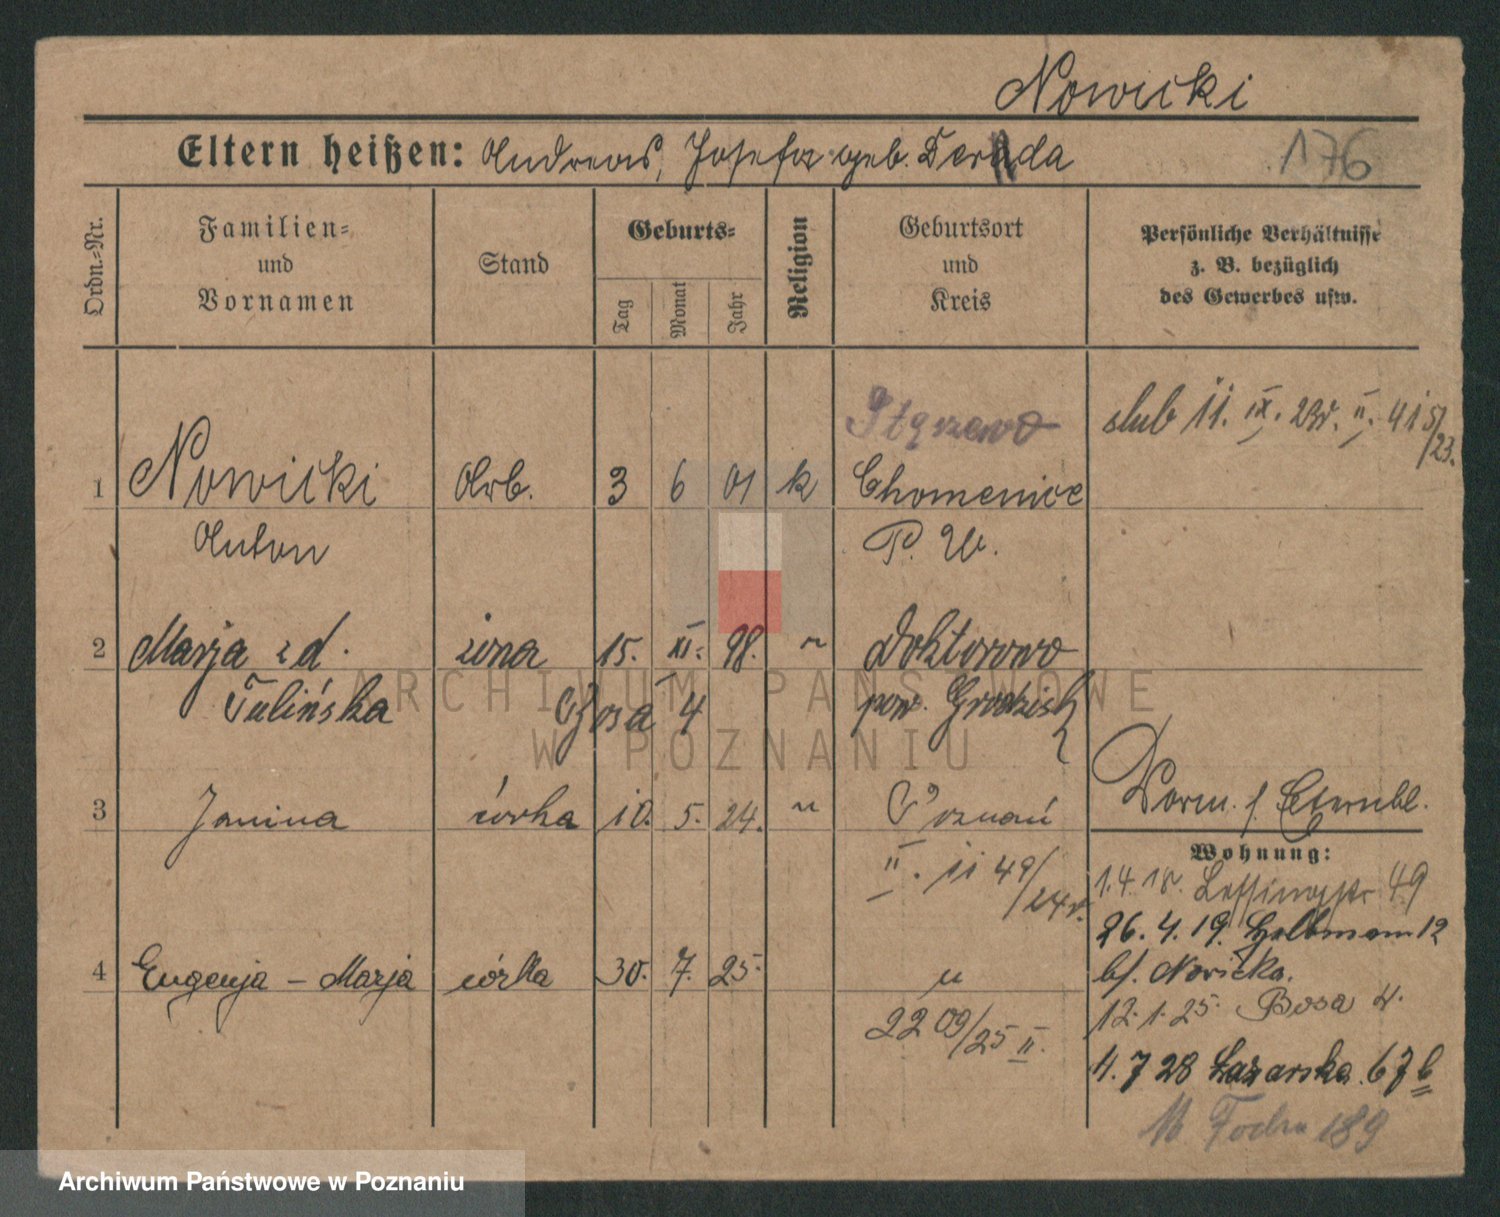 Nowicki
Eltern heißen: Andreas, Josefa geb. Deranda
176
Ordn.-Nr.
Familien- und Vornamen
Stand
Geburts-
Tag
Monat
Jahr
Religion
Geburtsort und Kreis
Persönliche Verhältnisse z. B. bezüglich des Gewerbes usw.
ślub 11. IX. 23r. II. 415/23.
1 Nowicki Arb. 3 6 01 k Chomenice
Anton P. W.
2 Marja z d. żona 15. XI. 98. " Doktorowo
Tulińska Bosa 4 pow. Grodzisk
3 Janina córka 10. 5. 24. " Poznań
II. 1149/24r.
4 Eugenja - Marja córka 30. 7. 25. "
2209/25 II.
Wohnung:
1.4.18. Lessingstr 49
26.4.19.
bf. Nowicka.
12.1.25 Bosa 4.
4.7 28 Łazarska 67 b
Focha 189
ARCHIWUM PAŃSTWOWE
W POZNANIU
Archiwum Państwowe w Poznaniu